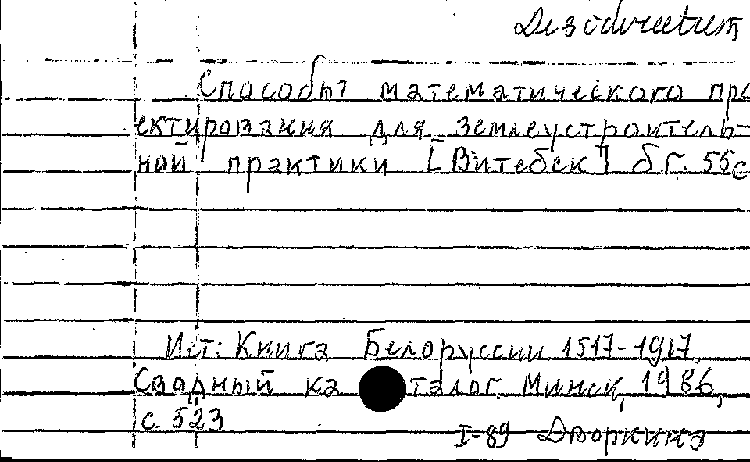 Способы математического про
ектирования для землеустроитель-
ной практики [Витебск] б г. 55с
Ист: Книга Белоруссии 1517-1917.
Сводный каталог. Минск, 1986,
с. 523
I-89 Дворкина